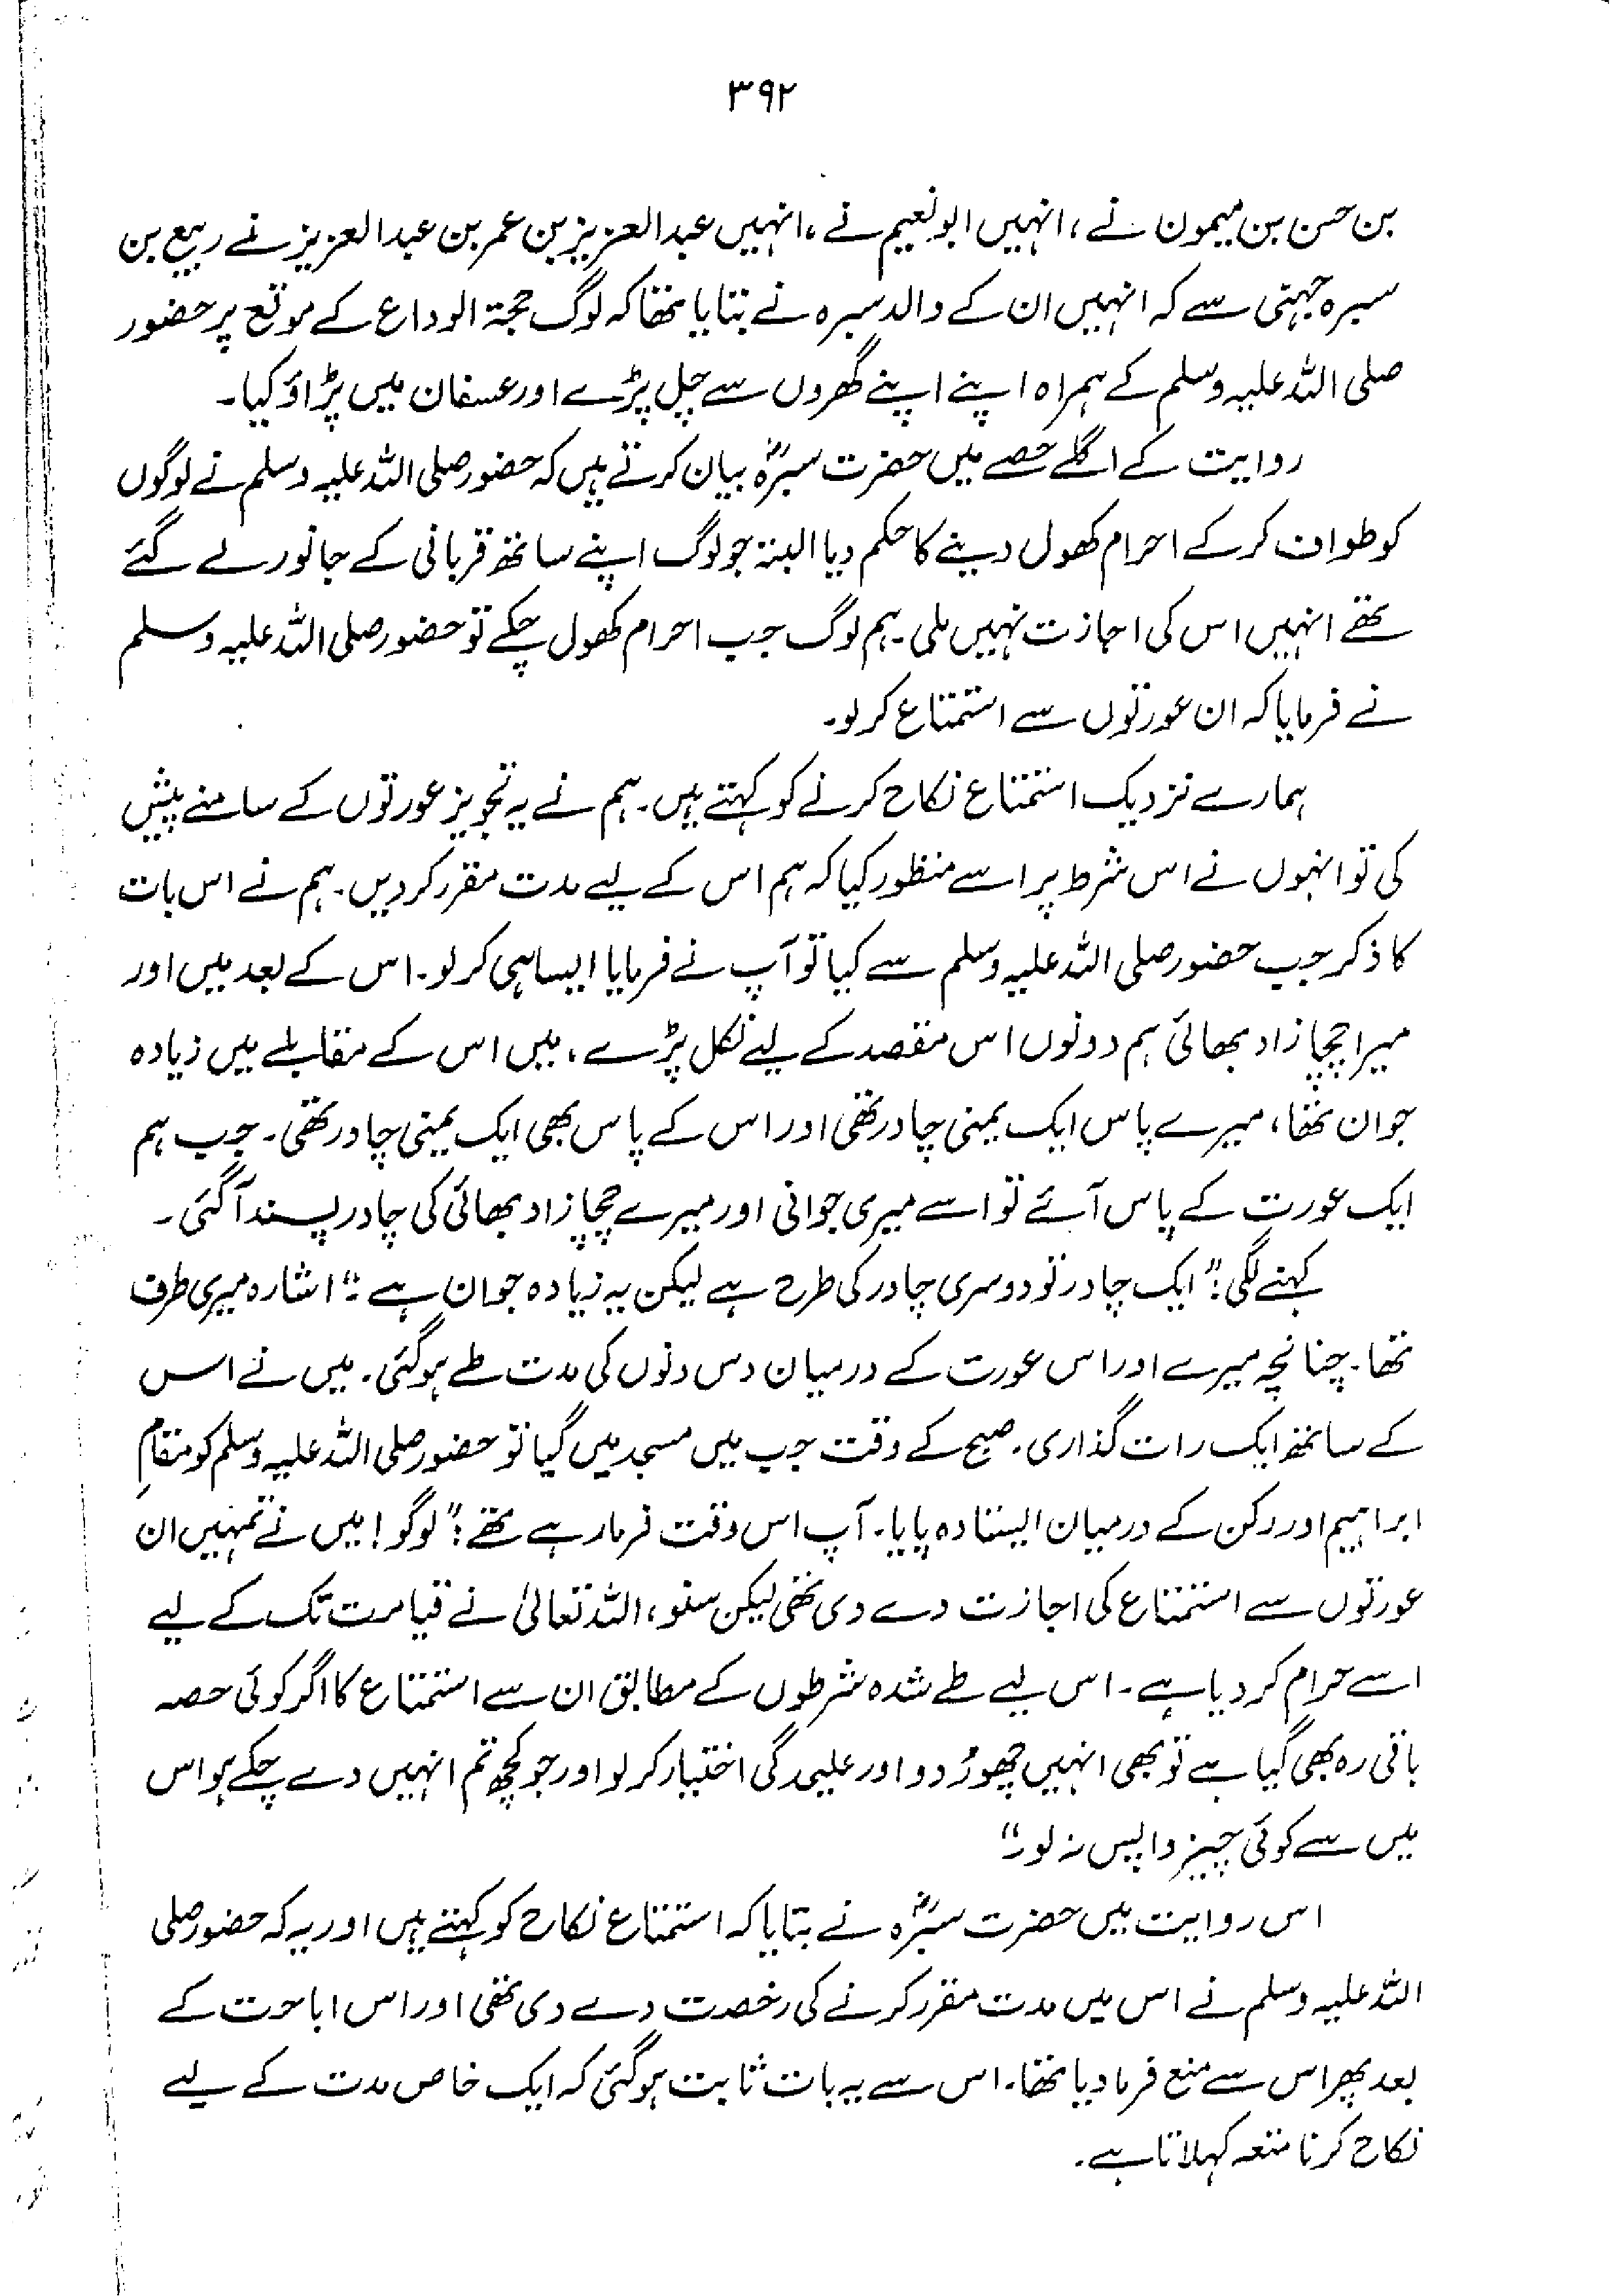 ۳۹۲
بن حسن بن میمون نے، انہیں ابونعیم نے، انہیں عبدالعزیز بن عمر بن عبدالعزیز نے ربیع بن
سبرہ جہنی سے کہ انہیں ان کے والد سبرہ نے بتایا تھا کہ لوگ حجۃ الوداع کے موقع پر حضور
صلی اللہ علیہ وسلم کے ہمراہ اپنے اپنے گھروں سے چل پڑے اور عسفان میں پڑاؤ کیا۔
روایت کے اگلے حصے میں حضرت سبرہؓ بیان کرتے ہیں کہ حضور صلی اللہ علیہ وسلم نے لوگوں
کو طواف کر کے احرام کھول دینے کا حکم دیا البتہ جو لوگ اپنے ساتھ قربانی کے جانور لے گئے
تھے انہیں اس کی اجازت نہیں ملی۔ ہم لوگ جب احرام کھول چکے تو حضور صلی اللہ علیہ وسلم
نے فرمایا کہ ان عورتوں سے استمتاع کر لو۔
ہمارے نزدیک استمتاع نکاح کرنے کو کہتے ہیں۔ ہم نے یہ تجویز عورتوں کے سامنے پیش
کی تو انہوں نے اس شرط پر اسے منظور کیا کہ ہم اس کے لیے مدت مقرر کر دیں۔ ہم نے اس بات
کا ذکر جب حضور صلی اللہ علیہ وسلم سے کیا تو آپ نے فرمایا ایسا ہی کر لو۔ اس کے بعد میں اور
میرا چچا زاد بھائی ہم دونوں اس مقصد کے لیے نکل پڑے، میں اس کے مقابلے میں زیادہ
جوان تھا، میرے پاس ایک یمنی چادر تھی اور اس کے پاس بھی ایک یمنی چادر تھی۔ جب ہم
ایک عورت کے پاس آئے تو اسے میری جوانی اور میرے چچا زاد بھائی کی چادر پسند آگئی۔
کہنے لگی: "ایک چادر تو دوسری چادر کی طرح ہے لیکن یہ زیادہ جوان ہے۔" اشارہ میری طرف
تھا۔ چنانچہ میرے اور اس عورت کے درمیان دس دنوں کی مدت طے ہوگئی۔ میں نے اس
کے ساتھ ایک رات گذاری۔ صبح کے وقت جب میں مسجد میں گیا تو حضور صلی اللہ علیہ وسلم کو مقامِ
ابراہیم اور رکن کے درمیان ایستادہ پایا۔ آپ اس وقت فرما رہے تھے: "لوگو! میں نے تمہیں ان
عورتوں سے استمتاع کی اجازت دے دی تھی لیکن سنو، اللہ تعالیٰ نے قیامت تک کے لیے
اسے حرام کر دیا ہے۔ اس لیے طے شدہ شرطوں کے مطابق ان سے استمتاع کا اگر کوئی حصہ
باقی رہ بھی گیا ہے تو بھی انہیں چھوڑ دو اور علیحدگی اختیار کر لو اور جو کچھ تم انہیں دے چکے ہو اس
میں سے کوئی چیز واپس نہ لو۔"
اس روایت میں حضرت سبرہؓ نے بتایا کہ استمتاع نکاح کو کہتے ہیں اور یہ کہ حضور صلی
اللہ علیہ وسلم نے اس میں مدت مقرر کرنے کی رخصت دے دی تھی اور اس اباحت کے
بعد پھر اس سے منع فرما دیا تھا۔ اس سے یہ بات ثابت ہوگئی کہ ایک خاص مدت کے لیے
نکاح کرنا متعہ کہلاتا ہے۔